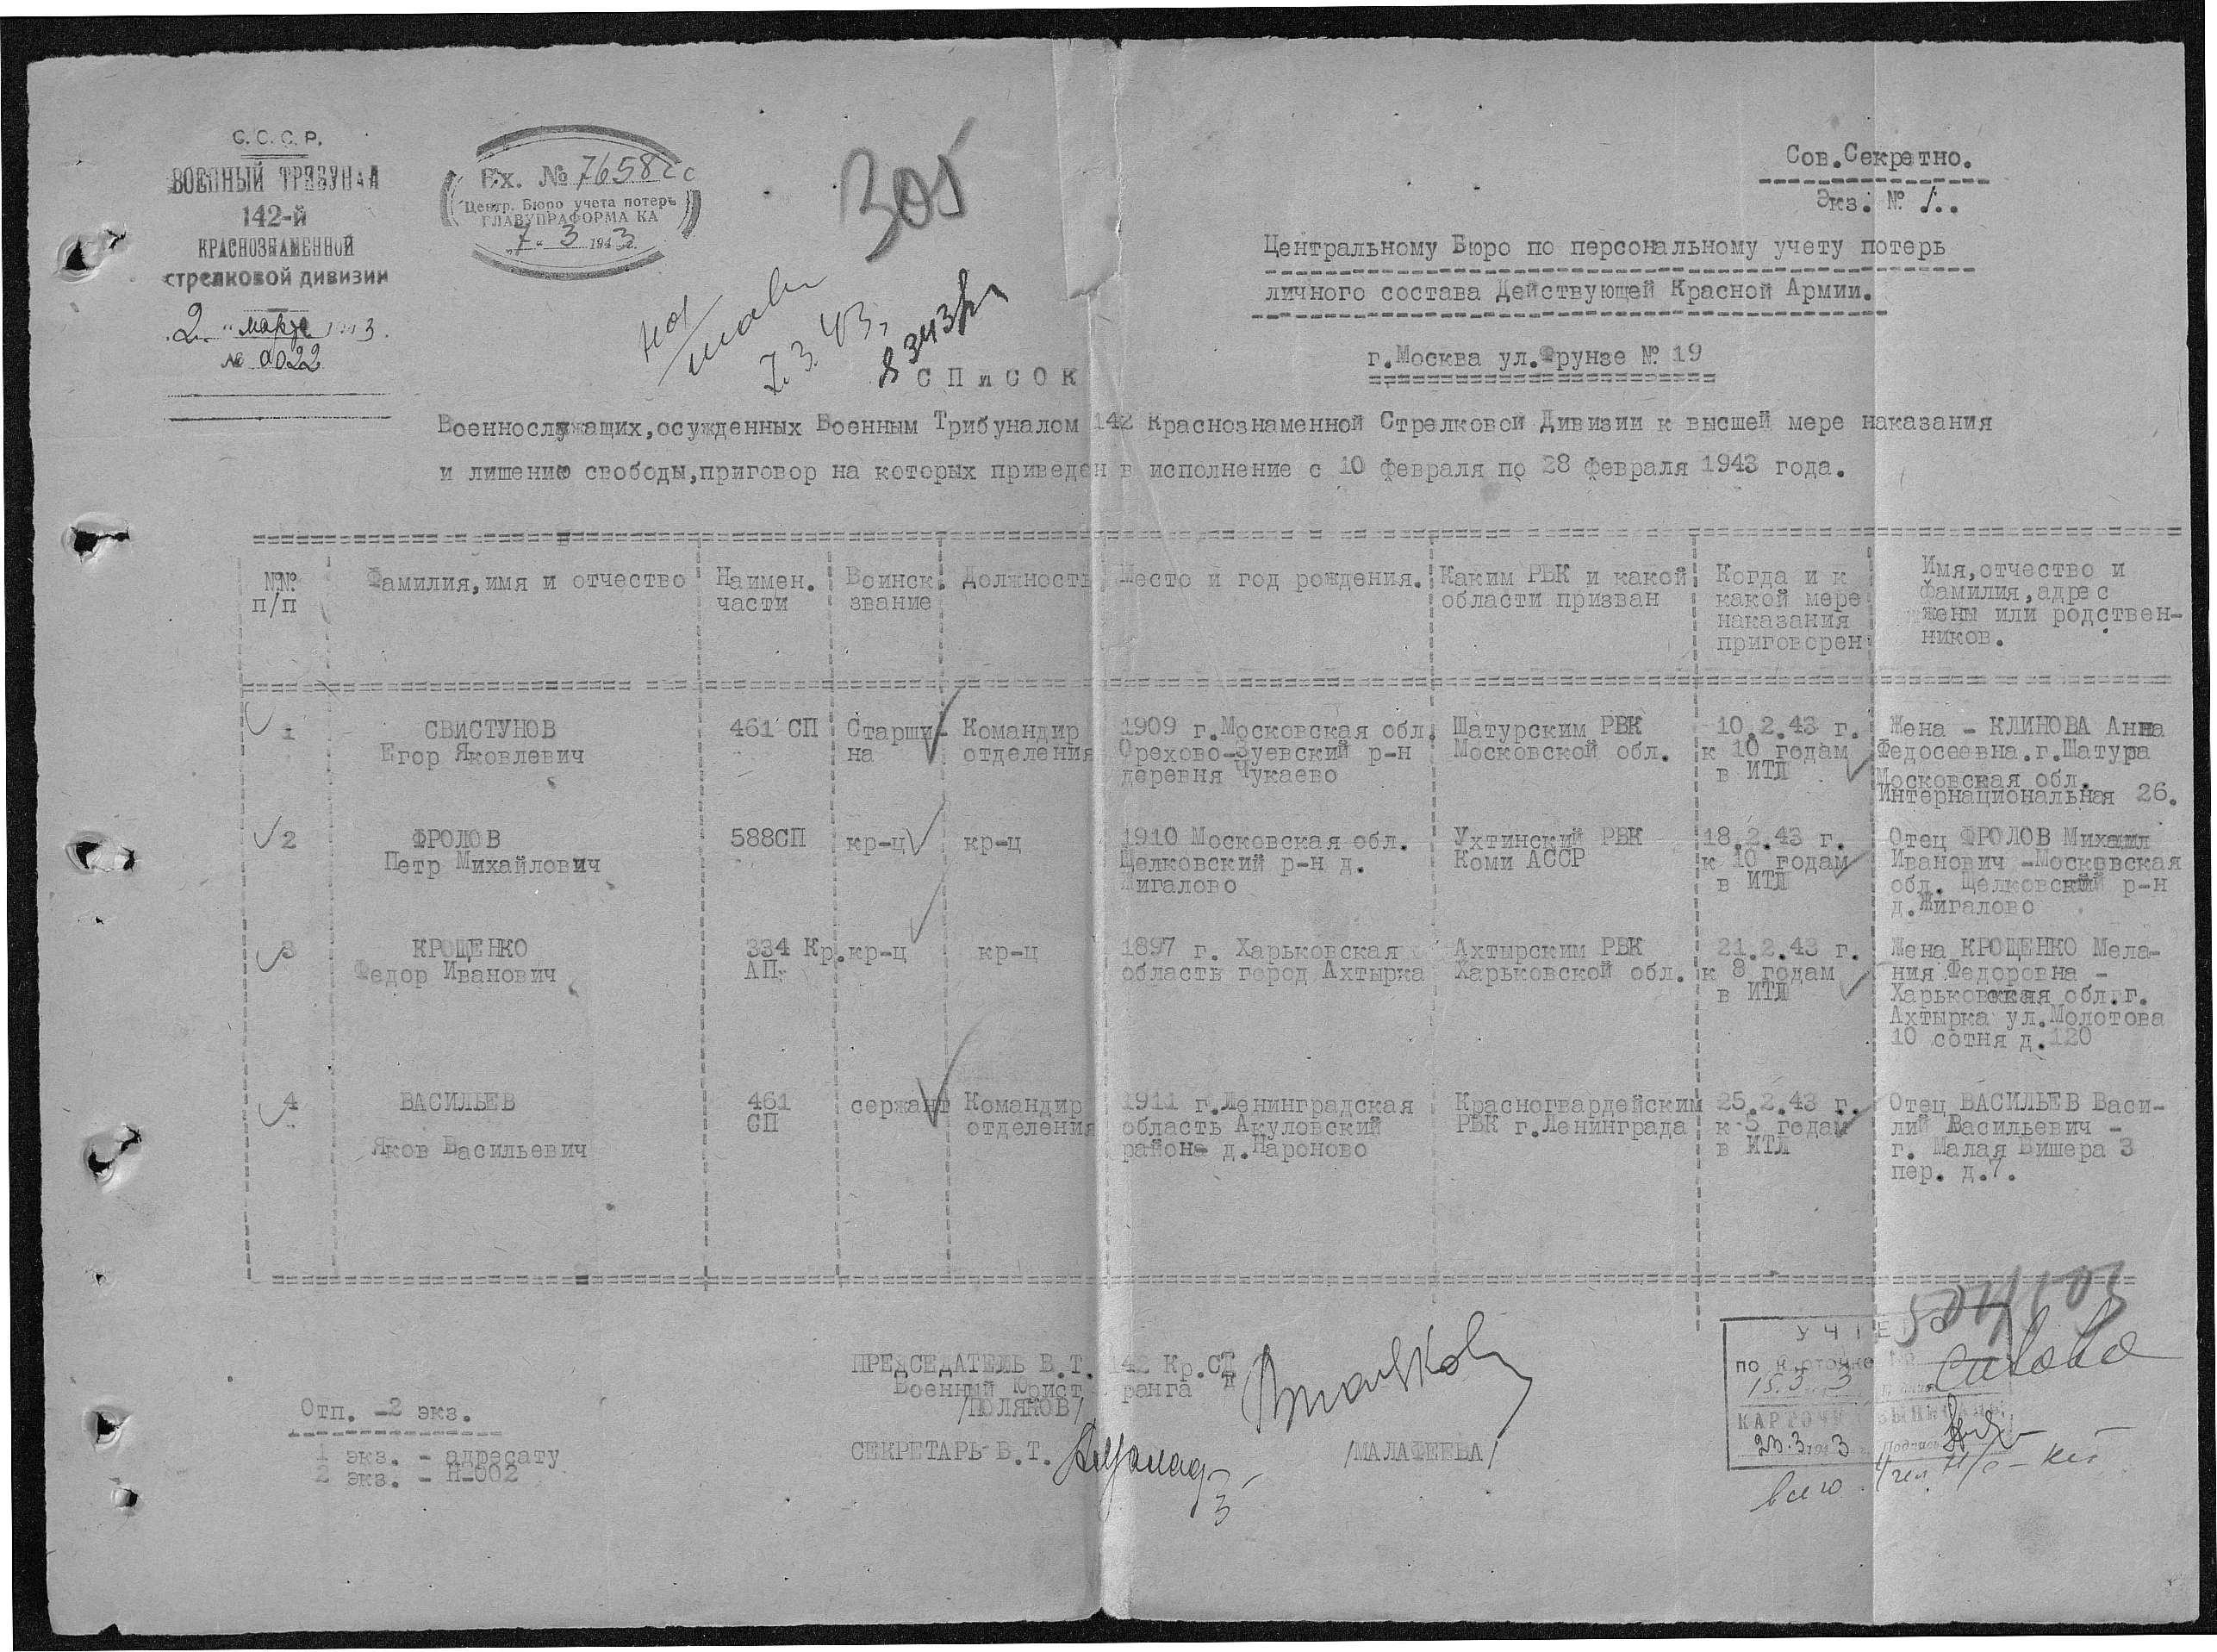 С.С.С.Р.
ВОЕННЫЙ ТРИБУНАЛ
142-й
КРАСНОЗНАМЕННОЙ
стрелковой дивизии
2 " марта 1943.
№ 0022
Вх. № 7658сс
Центр. Бюро учета потерь
ГЛАВУПРАФОРМА КА
"7" 3 1943г.
305
7.3.43,
Сов.Секретно.
Экз. № 1..
Центральному Бюро по персональному учету потерь
личного состава Действующей Красной Армии.
г.Москва ул.Фрунзе № 19
СПИСОК
Военнослужащих,осужденных Военным Трибуналом 142 Краснознаменной Стрелковой Дивизии к высшей мере наказания
и лишению свободы,приговор на которых приведен в исполнение с 10 февраля по 28 февраля 1943 года.
№№ п/п
Фамилия,имя и отчество
Наимен. части
Воинск. звание
Должность
Место и год рождения.
Каким РВК и какой области призван
Когда и к какой мере наказания приговорен
Имя,отчество и фамилия,адрес жены или родственников.
1
СВИСТУНОВ
Егор Яковлевич
461 СП
Старши-
на
Командир
отделения
1909 г.Московская обл.
Орехово-Зуевский р-н
деревня Чукаево
Шатурским РВК
Московской обл.
10.2.43 г.
к 10 годам
в ИТЛ
Жена - КЛИНОВА Анна
Федосеевна.г.Шатура
Московская обл.
Интернациональная 26.
2
ФРОЛОВ
Петр Михайлович
588СП
кр-ц
кр-ц
1910 Московская обл.
Щелковский р-н д.
Жигалово
Ухтинский РВК
Коми АССР
18.2.43 г.
к 10 годам
в ИТЛ
Отец ФРОЛОВ Михаил
Иванович -Московская
обл. Щелковский р-н
д.Жигалово
3
КРОЩЕНКО
Федор Иванович
334 Кр.
АП
кр-ц
кр-ц
1897 г. Харьковская
область город Ахтырка
Ахтырским РВК
Харьковской обл.
21.2.43 г.
к 8 годам
в ИТЛ
Жена КРОЩЕНКО Мела-
ния Федоровна -
Харьковская обл.г.
Ахтырка ул.Молотова
10 сотня д.120
4
ВАСИЛЬЕВ
Яков Васильевич
461
СП
сержант
Командир
отделения
1911 г.Ленинградская
область Акуловский
район- д.Нароново
Красногвардейским
РВК г.Ленинграда
25.2.43 г.
к 5 годам
в ИТЛ
Отец ВАСИЛЬЕВ Васи-
лий Васильевич -
г. Малая Вишера 3
пер. д.7.
ПРЕДСЕДАТЕЛЬ В.Т. 142 Кр.СД
Военный Юрист ранга
/ПОЛЯКОВ/
СЕКРЕТАРЬ В.Т.
/МАЛАФЕЕВА/
Отп. -2 экз.
1 экз. - адресату
2 экз. - Н-002
УЧТЕНО
по
15.3 3
КАРТОЧКИ ВЫПИСАНЫ
23.3 1943 Подпись
всего 4 чел